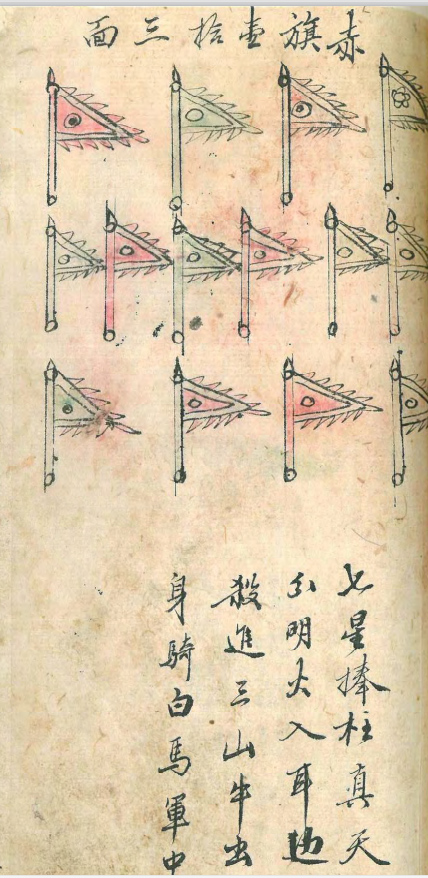 赤旗壹拾三面
七星捧柱真天
公明火入耳边
殺進三山牛出
身騎白馬軍中